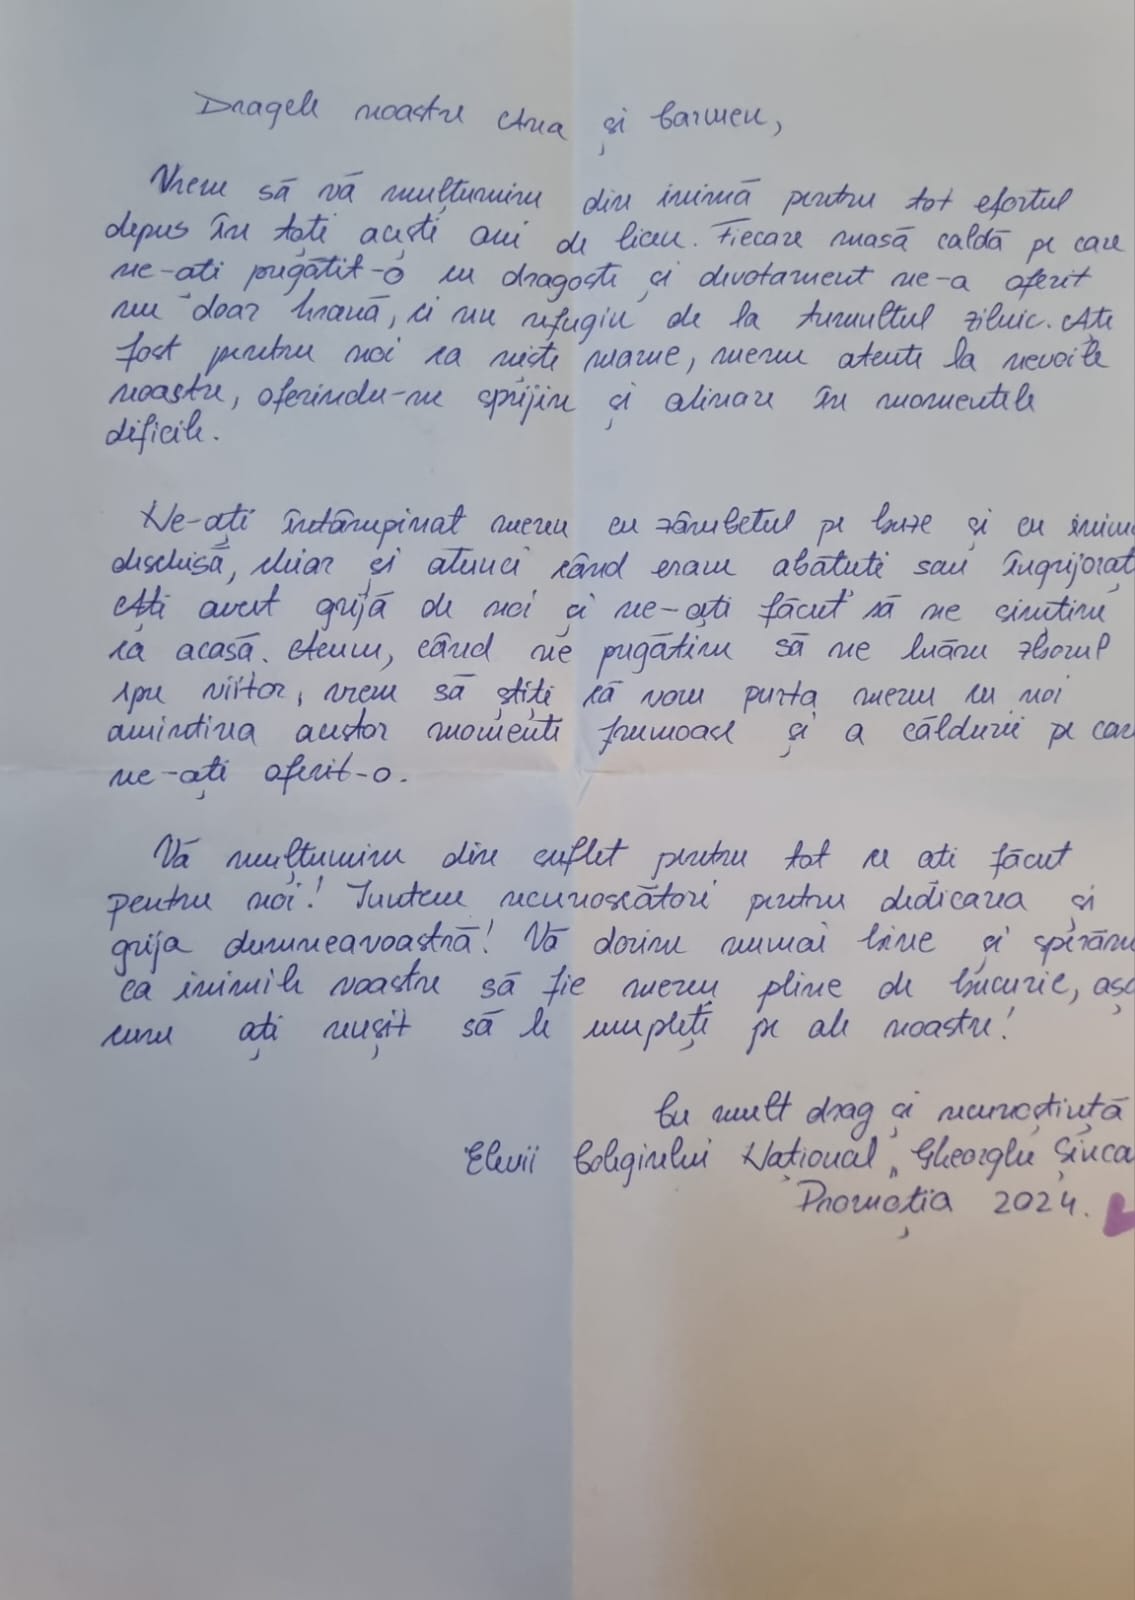 Dragele noastre Ana și Carmen,
Vrem să vă mulțumim din inimă pentru tot efortul
depus în toți acești ani de liceu. Fiecare masă caldă pe care
ne-ati pregătit-o cu dragoste și devotament ne-a oferit
nu doar hrană, ci un refugiu de la tumultul zilnic. Ati
fost pentru noi ca niște mame, mereu atente la nevoile
noastre, oferindu-ne sprijin și alinare în momentele
dificile.
Ne-ați întâmpinat mereu cu zâmbetul pe buze și cu inim
deschisă, chiar și atunci când eram abătuti sau îngrijorat
Ați avut grijă de noi și ne-ați făcut să ne simtim
ca acasă. Acum, când ne pregătim să ne luăm zborul
spre viitor, vrem să știți că vom purta mereu cu noi
amintirea acestor momente frumoase și a căldurii pe car
ne-ați oferit-o.
Vă mulțumim din suflet pentru tot ce ati făcut
pentru noi! Suntem recunoscători pentru dedicarea și
grija dumneavoastră! Vă dorim numai bine și sperăm
ca inimile voastre să fie mereu pline de bucurie, așa
cum ați reușit să le umpleți pe ale noastre!
Cu mult drag și recunoștiuță
Elevii Colegiului Național „Gheorghe Șincai
Promoția 2024.